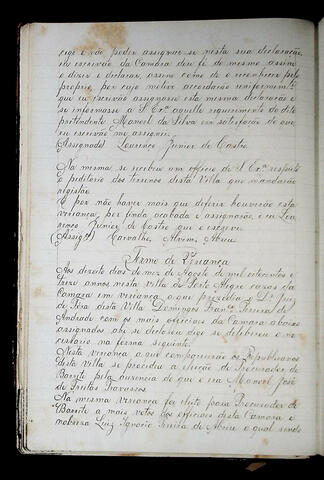 e não poder assignar-se nesta sua declaração,
eu escrivão da Camara dou fé do mesmo assim
o dizer e declarar, assim como de o reconhecer pelo
proprio, por cujo motivo accordarão uniformemente
que eu escrivão assignasse esta mesma declaração e
se informasse a S. Exª aquelle requerimento do dito
pretendente Manoel da Silva em satisfação do que,
eu escrivão me assignei.
(Assignado) Lourenço Junior de Castro
Na mesma se recebeu um officio de S. Exª respeito
o peditorio dos terrenos desta Villa que mandarão
registar.
E por não haver mais que deferir houverão esta
vereança por finda acabada e assignarão, e eu Lou
renço Junior de Castro que o escrevi.
(Assigº) Carvalho, Alvim, Abreu
Termo de Vereança
Aos dezoito dias do mez de Agosto de mil oitocentos e
treze annos nesta villa de Porto Alegre cazas da
Camara em vereança a que prezedio o Dº Juiz
de Fora desta Villa Domingos Franᶜᵒ
Andrade com os mais officiaes da Camara abaixo
assignados, ahi se declarou se deliberou o ne
cessario na forma seguinte.
Nesta vereança a que comparecerão os Republicanos
desta villa se procedeu a eleição de Procurador do
Barrete pela auzencia do que o era Manoel José
de Freitas Travassos.
Na mesma vereança foi eleito para Procurador de
Barrete a mais votos dos officiaes desta Camara e
nobreza Luiz Ignacio Pereira de Abreu o qual sendo